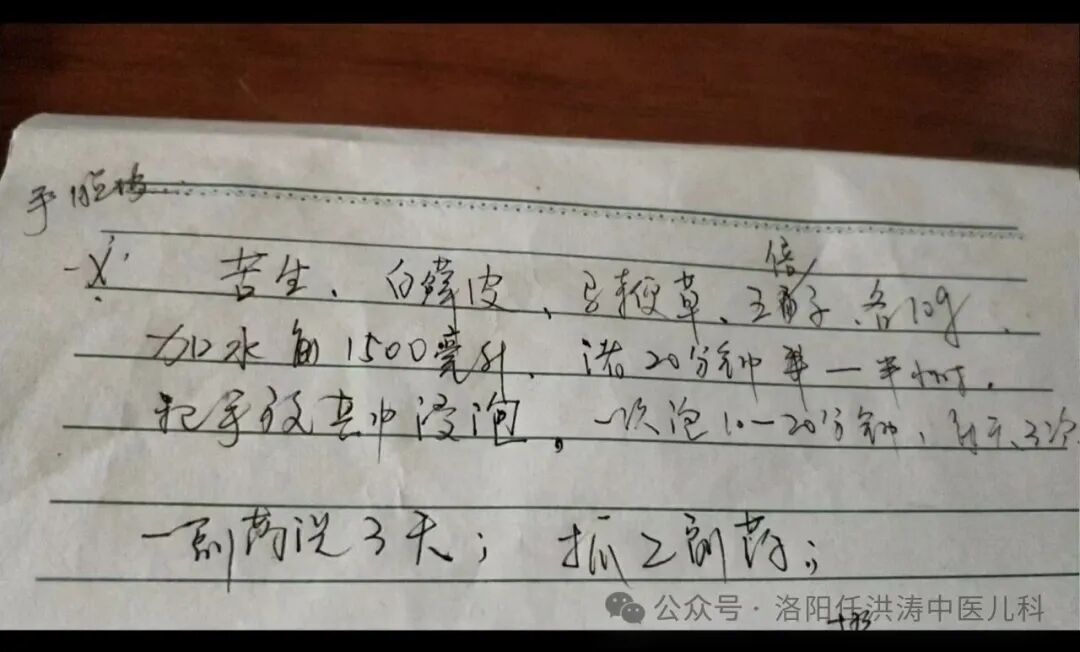 手脱
苦生、白藓皮、马鞭草、五倍子、各10g、
加水 1500毫升、煮20分钟 一半时。
把手放其中浸泡,一次泡10-20分钟、每天3次
一剂药洗3天; 抓2剂药;
公众号·洛阳任洪涛中医儿科